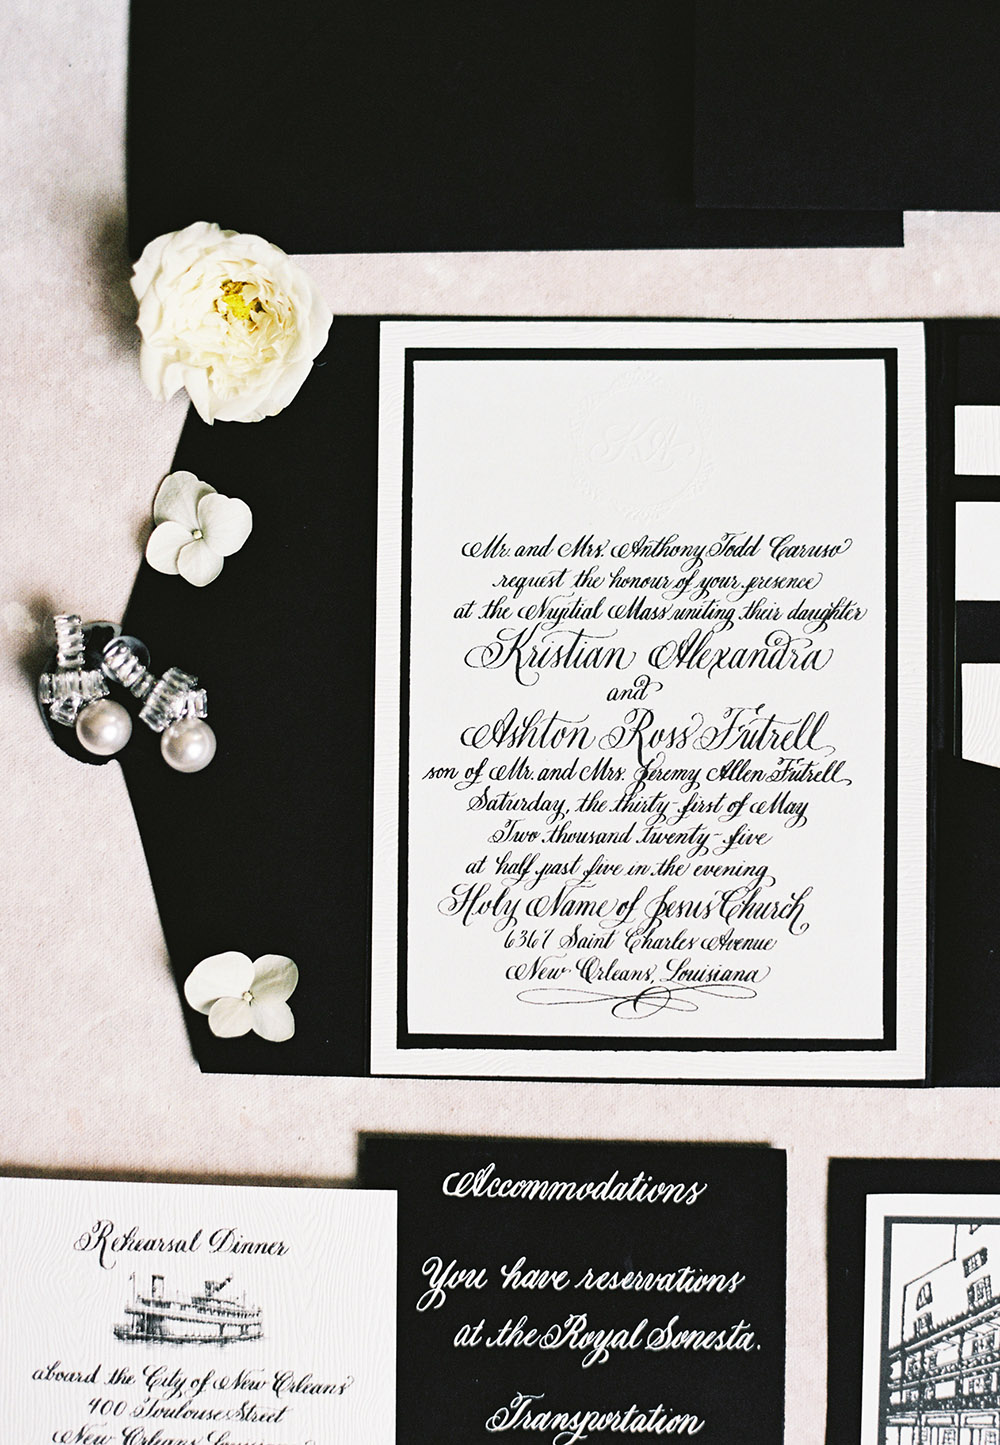 KA
Mr. and Mrs. Anthony Todd Caruso
request the honour of your presence
at the Nuptial Mass uniting their daughter
Kristian Alexandra
and
Ashton Ross Futrell
son of Mr. and Mrs. Jeremy Allen Futrell
Saturday, the thirty-first of May
Two thousand twenty-five
at half past five in the evening
Holy Name of Jesus Church
6367 Saint Charles Avenue
New Orleans, Louisiana
Rehearsal Dinner
aboard the City of New Orleans
400 Toulouse Street
New Orleans, Louisiana
Accommodations
You have reservations
at the Royal Sonesta.
Transportation